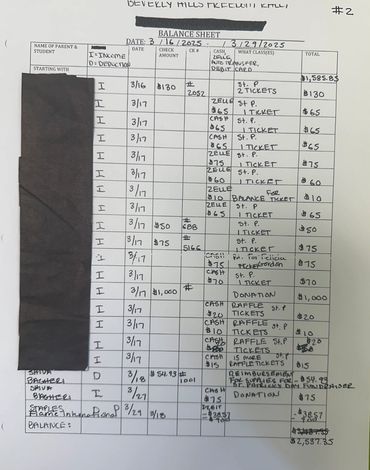 BEVERLY HILLS FREEDOM RALLY
#2
BALANCE SHEET
DATE: 3/16/2025 - 3/29/2025
NAME OF PARENT & STUDENT I=INCOME D=DEDUCTION DATE CHECK AMOUNT CK # CASH, ZELLE, AUTO TRANSFER, DEBIT CARD WHAT CLASS(ES) TOTAL
STARTING WITH $1,585.83
I 3/16 $130 # 2052 ST. P. 2 TICKETS $130
I 3/17 ZELLE $65 ST. P. 1 TICKET $65
I 3/17 CASH $65 ST. P. 1 TICKET $65
I 3/17 ZELLE $75 ST. P. 1 TICKET $75
I 3/17 ZELLE $60 ST. P. 1 TICKET $60
I 3/17 ZELLE $10 FOR BALANCE TICKET $10
I 3/17 ZELLE $65 ST. P 1 TICKET $65
I 3/17 $50 # 688 ST. P. 1 TICKET $50
I 3/17 $75 # 5166 ST. P. 1 TICKET $75
I 3/17 CASH $75 Felicia $75
I 3/17 CASH $70 ST. P. 1 TICKET $70
I 3/17 $1,000 # DONATION $1,000
I 3/17 CASH $20 RAFFLE ST. P TICKETS $20
I 3/17 CASH $10 RAFFLE ST. P TICKETS $10
I 3/17 CASH RAFFLE ST. P TICKETS $20
I 3/17 CASH $15 15 MORE ST. P RAFFLE TICKETS $15
SHIVA BAGHERI D 3/18 $54.93 # 1001 REIMBURSEMENT FOR SUPPLIES FOR ST. PATRICKS DAY FUNDRAISER -$54.93
SHIVA BAGHERI I 3/27 CASH $75 DONATION $75
STAPLES D 3/29 DEBIT -$38.57 -$38.57
International D 3/18
BALANCE:
$2,537.35